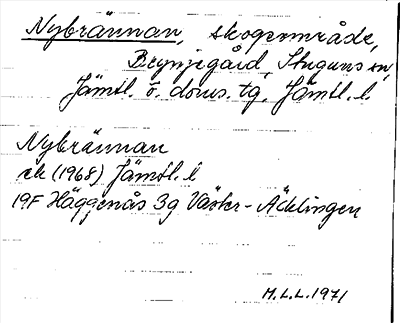 Nybrännan, skogsområde,
Brynjegård, Stuguns sn,
Jämtl. ö. doms. tg, Jämtl. l.
Nybrännan
ek (1968) Jämtl. l
19F Häggenås 3g Väster-Äcklingen
M.L.L. 1971